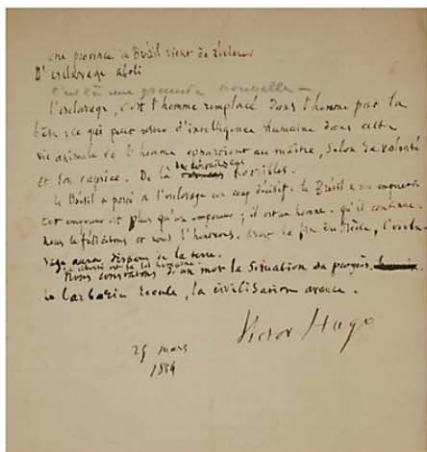 une province du Brésil vient de déclarer
l'esclavage aboli
c'est là une grande nouvelle —
l'esclavage, c'est l'homme remplacé dans l'homme par la
bête; ce qui peut rester d'intelligence humaine dans cette
vie animale de l'homme appartient au maître, selon sa volonté
et son caprice. De là des circonstances horribles.
le Brésil a porté à l'esclavage un coup décisif. le Brésil a un empereur
cet empereur est plus qu'un empereur; il est un homme. qu'il continue.
nous le félicitons et nous l'honorons. avant la fin du siècle, l'escla-
vage aura disparu de la terre.
la liberté est la loi humaine.
Nous constatons d'un mot la situation du progrès.
la barbarie recule, la civilisation avance.
Victor Hugo
25 mars
1884